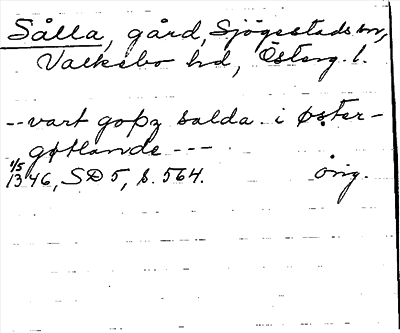 Sålla, gård, Sjögestads sn,
Valkebo hd, Österg. l.
-- vart gopz salda i øster-
gøtlande ---
1/5 1346, SD 5, s. 564. orig.